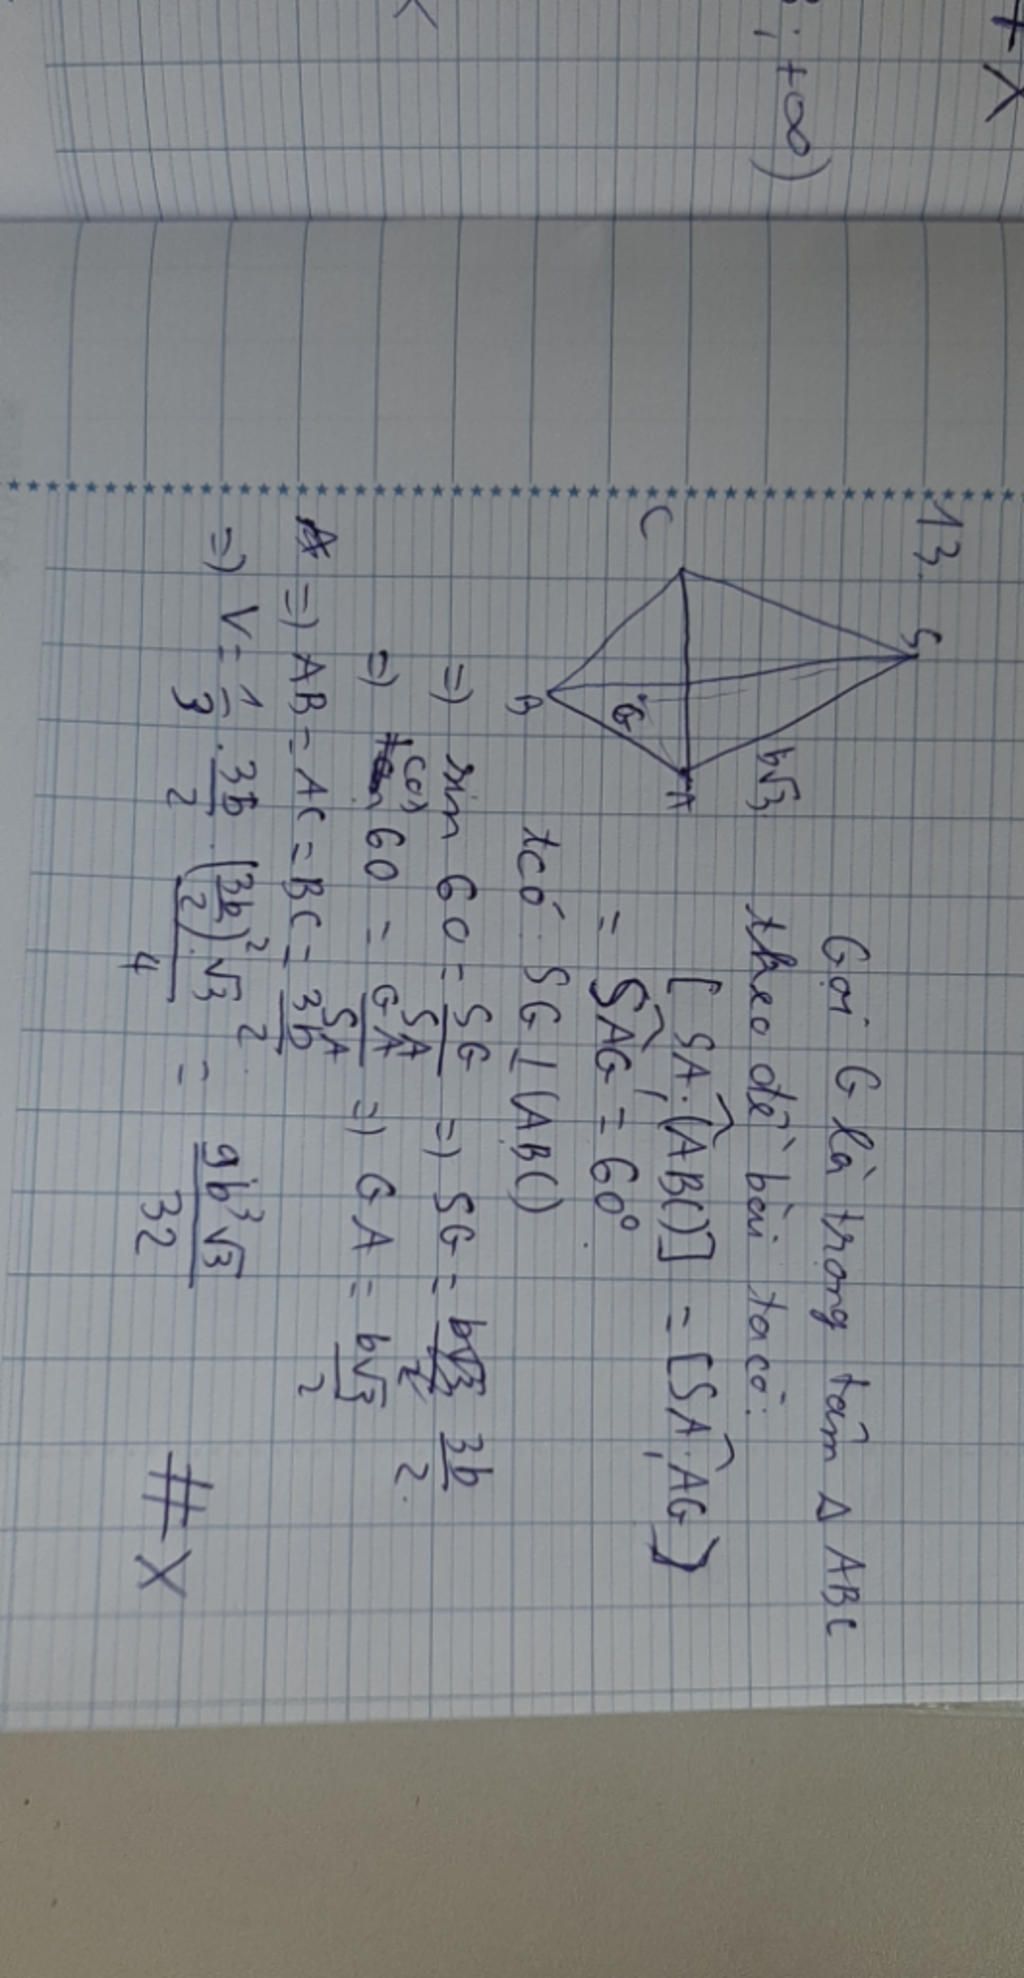 + x
; +∞)
13.
S
b√3
A
C
G
B
Gọi G là trọng tâm Δ ABC
theo đề bài ta có:
[SA, (ABC)] = (SA, AG)
= SAG = 60°
tcó: SG ⊥ (ABC)
=) sin 60 = SG/SA =) SG = 3b/2.
=) cos 60 = GA/SA =) GA = b√3/2
=) AB = AC = BC = 3b/2
=) V = 1/3 . 3b/2 . (3b/2)² . √3/4 = 9b³√3/32
# X